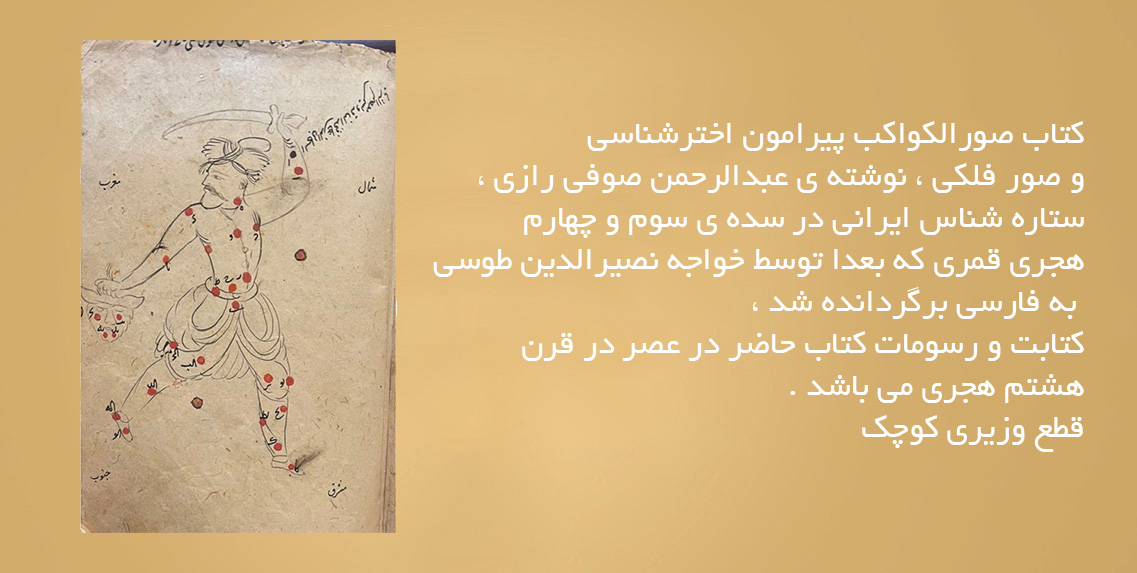 کتاب صورالکواکب پیرامون اخترشناسی
و صور فلکی ، نوشته ی عبدالرحمن صوفی رازی ،
ستاره شناس ایرانی در سده ی سوم و چهارم
هجری قمری که بعدا توسط خواجه نصیرالدین طوسی
به فارسی برگردانده شد ،
کتابت و رسومات کتاب حاضر در عصر در قرن
هشتم هجری می باشد .
قطع وزیری کوچک
مغرب
شمال
جنوب
مشرق